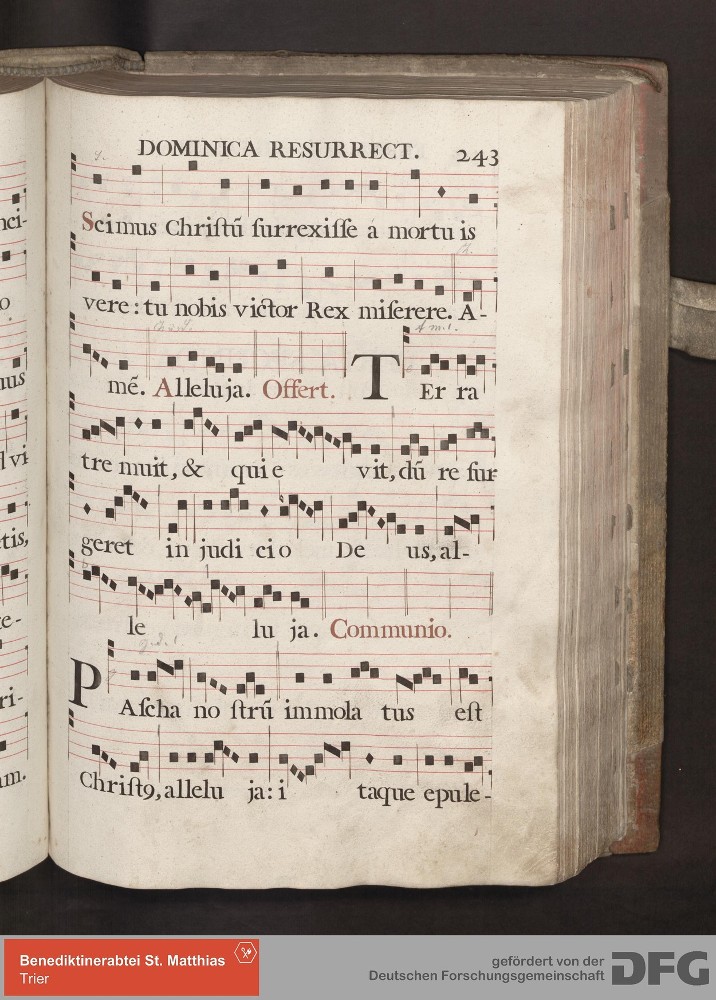 DOMINICA RESURRECT. 243
Scimus Chriſtũ ſurrexiſſe á mortu is
vere: tu nobis victor Rex miſerere. A-
mẽ. Alleluja. Offert. TEr ra
tre muit, & quie vit, dũ re ſur
geret in judi cio De us, al-
le lu ja. Communio.
PAſcha no ſtrũ immola tus eſt
Chriſt9, allelu ja: i taque epule-
nci-
o
uus
l vi
tis,
te-
ri-
am.
Benediktinerabtei St. Matthias
Trier
gefördert von der
Deutschen Forschungsgemeinschaft DFG